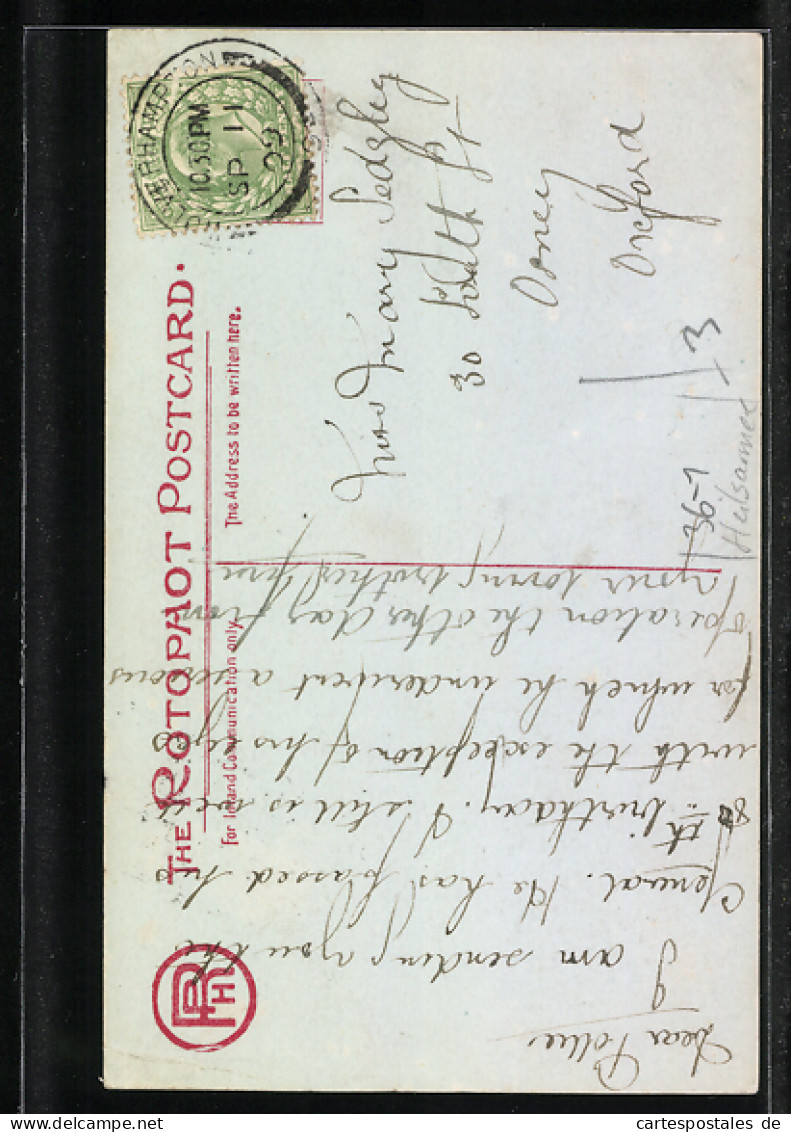 THE ROTOPHOT POSTCARD.
For Inland Communication only.
The Address to be written here.
RPH
WOLVERHAMPTON
10.30 PM
SP 11
09
Miss Mary Sedgley
30 South St
Osney
Oxford
3
36-1
Heilsarmee
Dear Pollie
I am sending you the
General. He has passed his
80th birthday. & still is well
with the exception of his eyes
for which he underwent a serious
operation the other day from
your loving brother Jim
cartespostales de